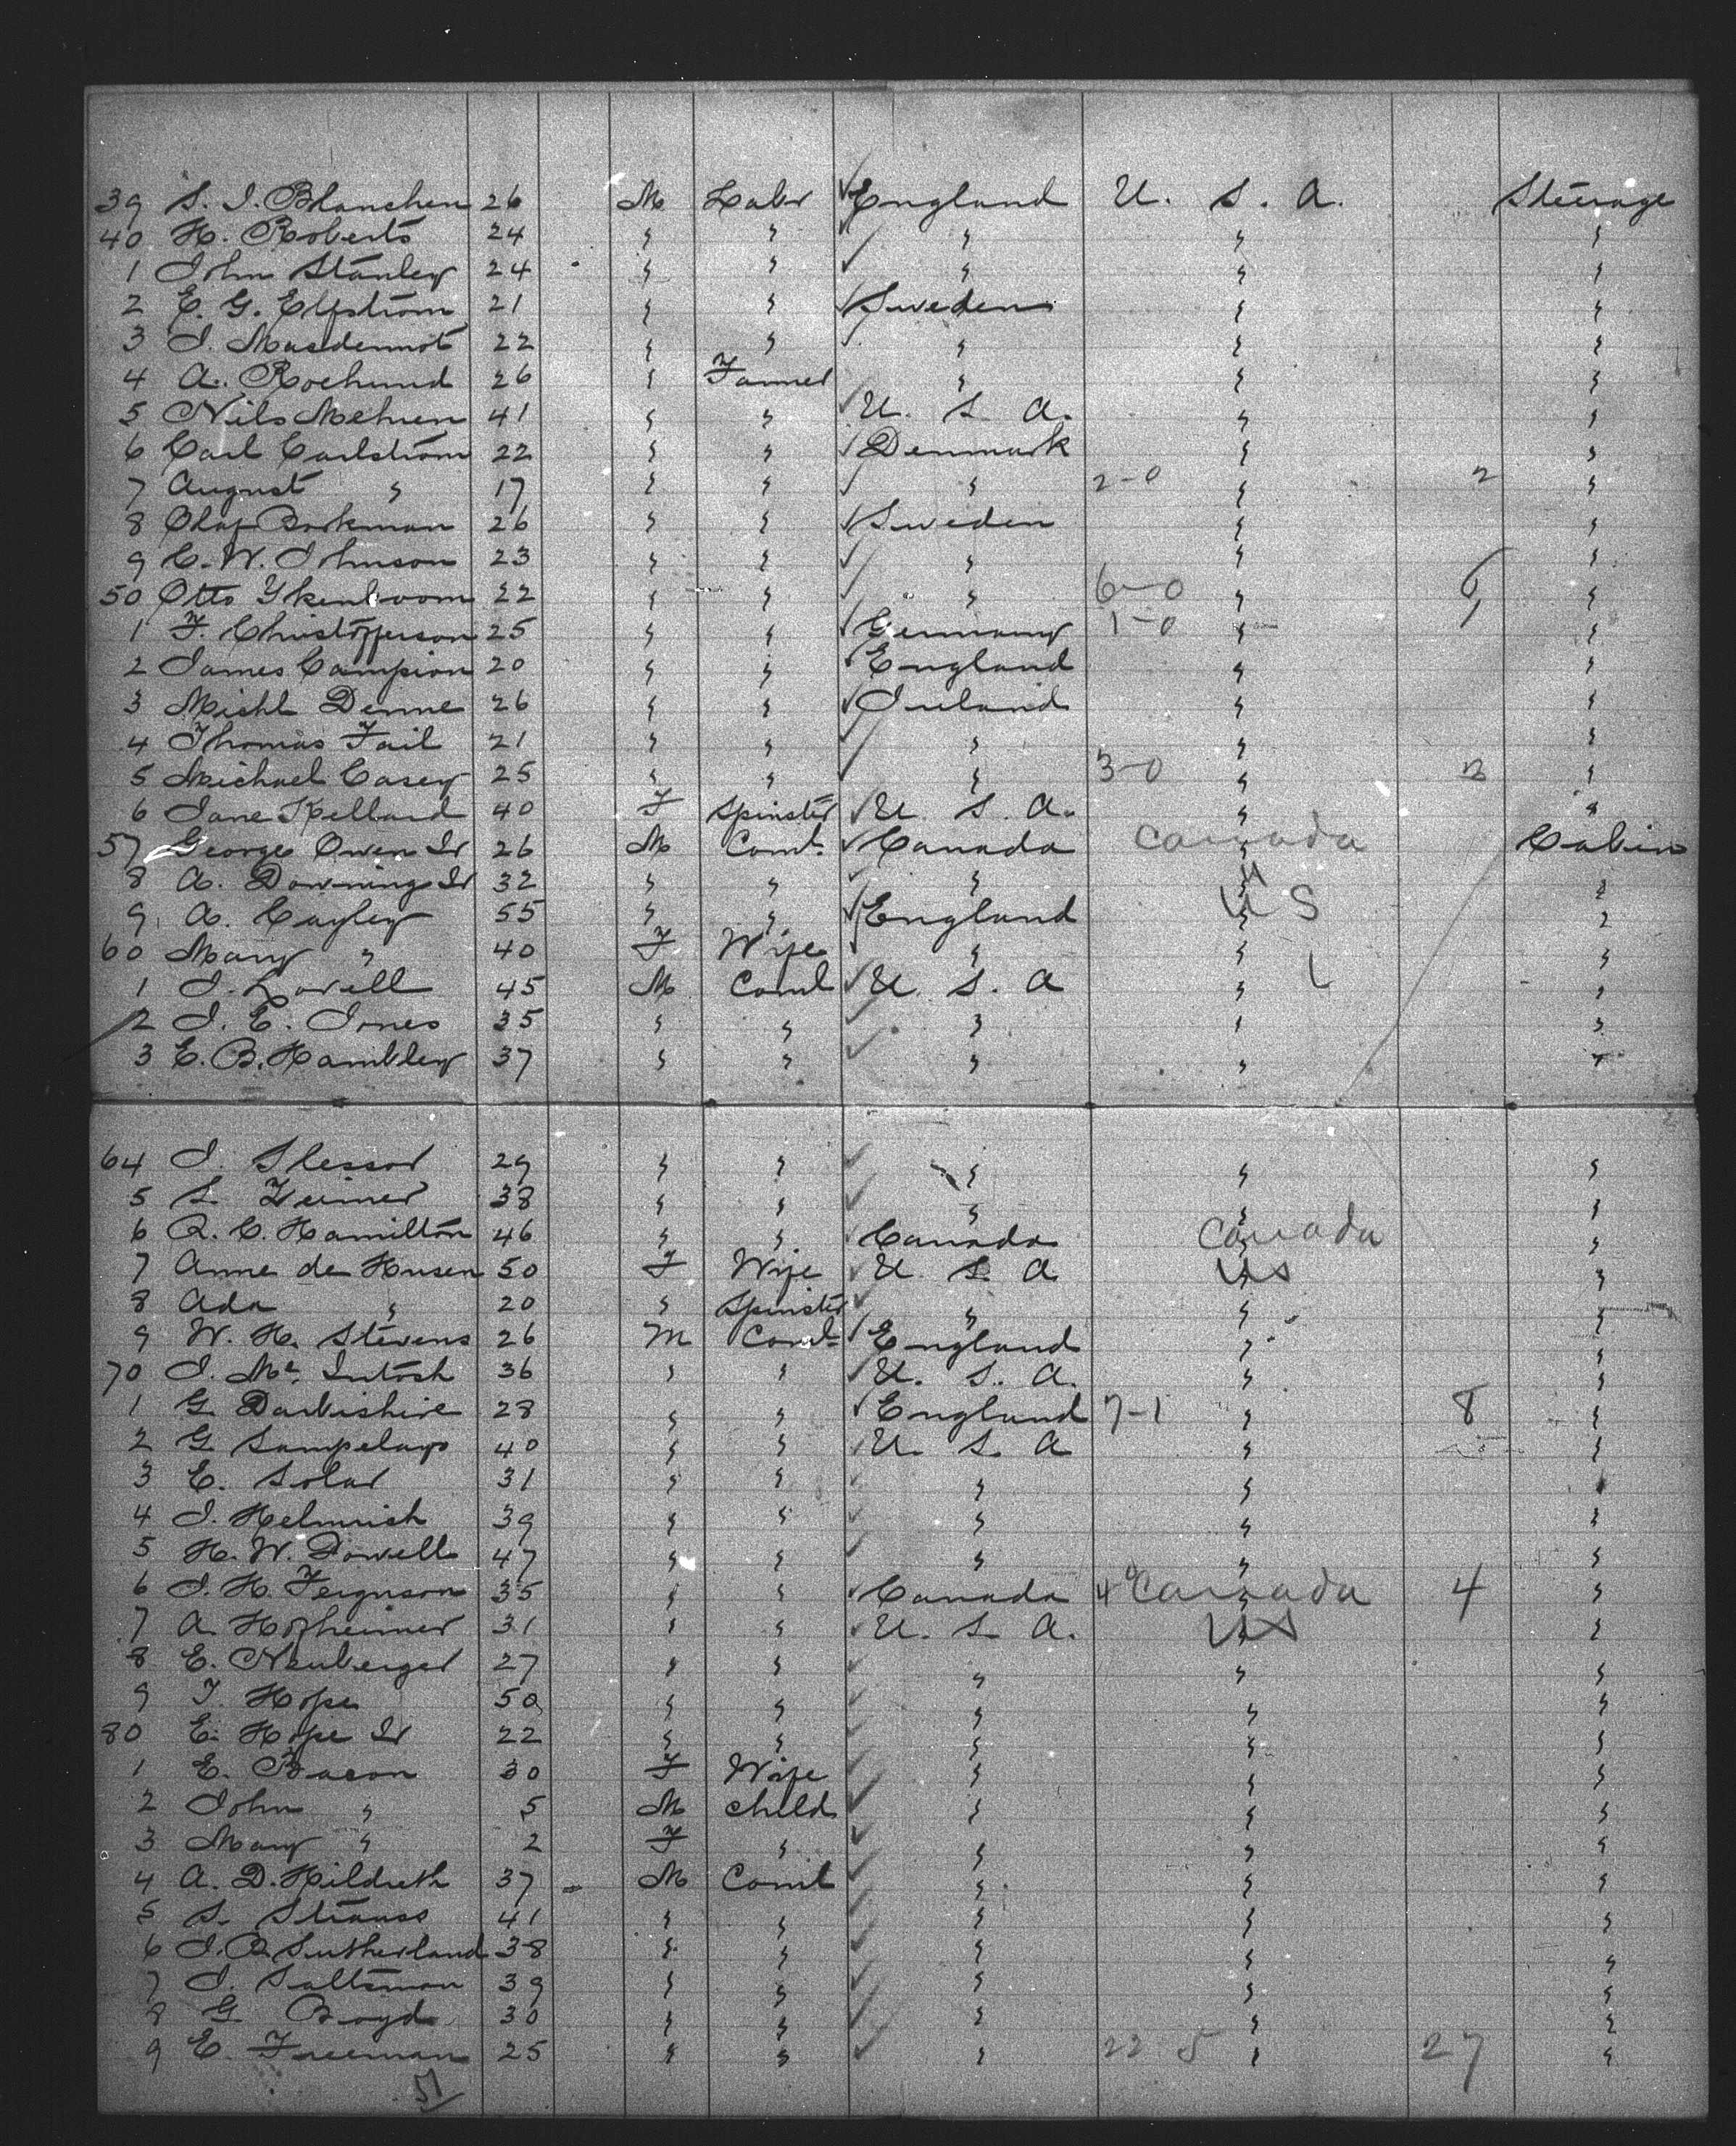 39 S. J. Blanchen 26 M Labr England U. S. A. Steerage
40 H. Roberts 24 " " " " "
1 John Stanley 24 " " " " "
2 E. G. Elfstrom 21 " " Sweden " "
3 J. 22 " " " " "
4 A. 26 " Farmer " " "
5 Nils Mehren 41 " " U. S. A. " "
6 Carl Carlstrom 22 " " Denmark " "
7 August " 17 " " " 2-0 " 2 "
8 Olaf Borkman 26 " " Sweden " "
9 C. W. Johnson 23 " " " " "
50 Otto 22 " " " 6-0 " 6 "
1 F. Christofferson 25 " " Germany 1-0 " "
2 James Campion 20 " " England " "
3 Michl Denne 26 " " Ireland " "
4 Thomas Fail 21 " " " " "
5 Michael Casey 25 " " " 3-0 " "
6 Jane Kelland 40 F Spinster U. S. A. " "
57 George Owen Jr 26 M Coml. Canada Canada Cabin
8 A. Downing Jr 32 " " " " "
9 A. Cayley 55 " " England U S "
60 Mary " 40 F Wife " " "
1 J. Lovell 45 M Coml U. S. A " "
2 J. E. Jones 35 " " " " "
3 E. B. Hambley 37 " " " " "
64 J. Slessor 29 " " " " "
5 L. 38 " " " " "
6 R. C. Hamilton 46 " " Canada Canada "
7 Anne de Husen 50 F Wife U. S. A US "
8 Ada " 20 " Spinster " " "
9 W. H. Stevens 26 M Coml. England " "
70 J. Mc. Intosh 36 " " U. S. A. " "
1 G Darbishire 28 " " England 7-1 " 8 "
2 G Sampelayo 40 " " U. S. A " "
3 E. Solar 31 " " " " "
4 J. Helmrich 39 " " " " "
5 H. W. Powell 47 " " " " "
6 J. H. Ferguson 35 " " Canada 4-0 Canada 4 "
7 A. Hofheimer 31 " " U. S. A. US "
8 E. Neuberger 27 " " " " "
9 T. Hope 50 " " " " "
80 E. Hope Jr 22 " " " " "
1 E. Bacon 30 F Wife " " "
2 John " 5 M child " " "
3 Mary " 2 F " " " "
4 A. D. Hildreth 37 M Coml " " "
5 S. Strauss 41 " " " " "
6 J. B. Sutherland 38 " " " " "
7 J. Saltsman 39 " " " " "
8 G Boyd 30 " " " " "
9 E. Freeman 25 " " " 22-5 " 27 "
51